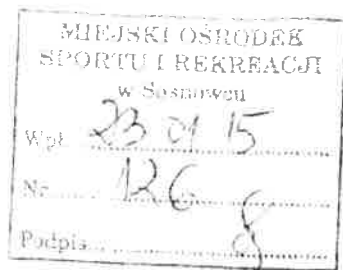 MIEJSKI OŚRODEK
SPORTU I REKREACJI
w Sosnowcu
Wpł. 23 01 15
Nr ........ 126 ........
Podpis ........